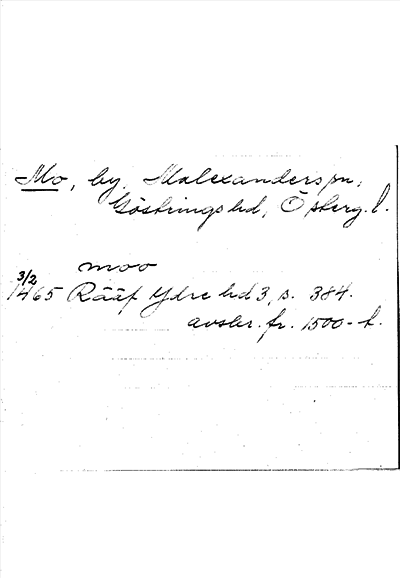 Mo, by, Malexanders sn,
Göstrings hd, Östergl. l.
moo
3/2
1465 Rääf Ydre hd 3, s. 384.
avskr. fr. 1500-t.